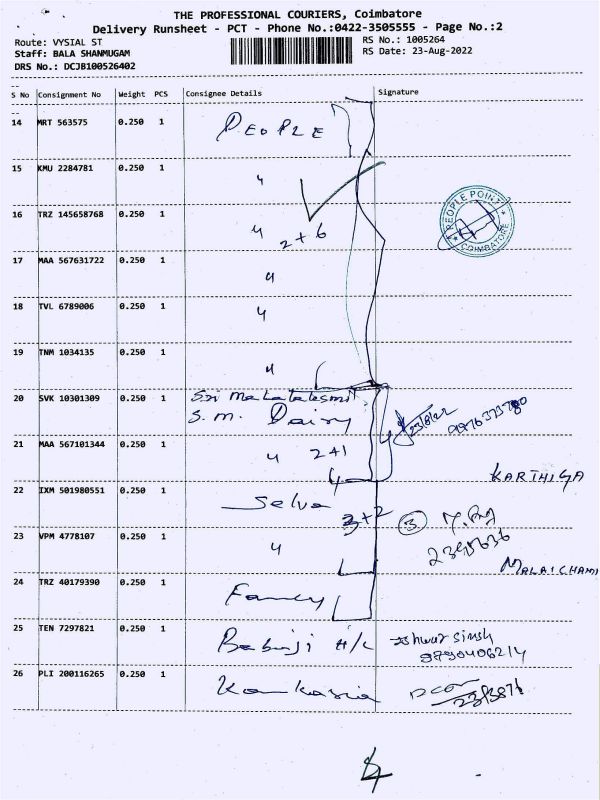 THE PROFESSIONAL COURIERS, Coimbatore
Delivery Runsheet - PCT - Phone No.:0422-3505555 - Page No.:2
Route: VYSIAL ST
RS No.: 1005264
Staff: BALA SHANMUGAM
RS Date: 23-Aug-2022
DRS No.: DCJB100526402
S No Consignment No Weight PCS Consignee Details Signature
14 MRT 563575 0.250 1 PEOPLE
15 KMU 2284781 0.250 1 "
16 TRZ 145658768 0.250 1 " 2+6 PEOPLE POINT COIMBATORE
17 MAA 567631722 0.250 1 "
18 TVL 6789006 0.250 1 "
19 TNM 1034135 0.250 1 "
20 SVK 10301309 0.250 1 Sri
S.M. Dairy 23/8/22
21 MAA 567101344 0.250 1 " 2+1
KARTHIGA
22 IXM 501980551 0.250 1 Selva 3+2 3
23 VPM 4778107 0.250 1 "
MALAICHAMI
24 TRZ 40179390 0.250 1 Family
25 TEN 7297821 0.250 1 Babuji H/L Singh
9790406214
26 PLI 200116265 0.250 1 Kankaria